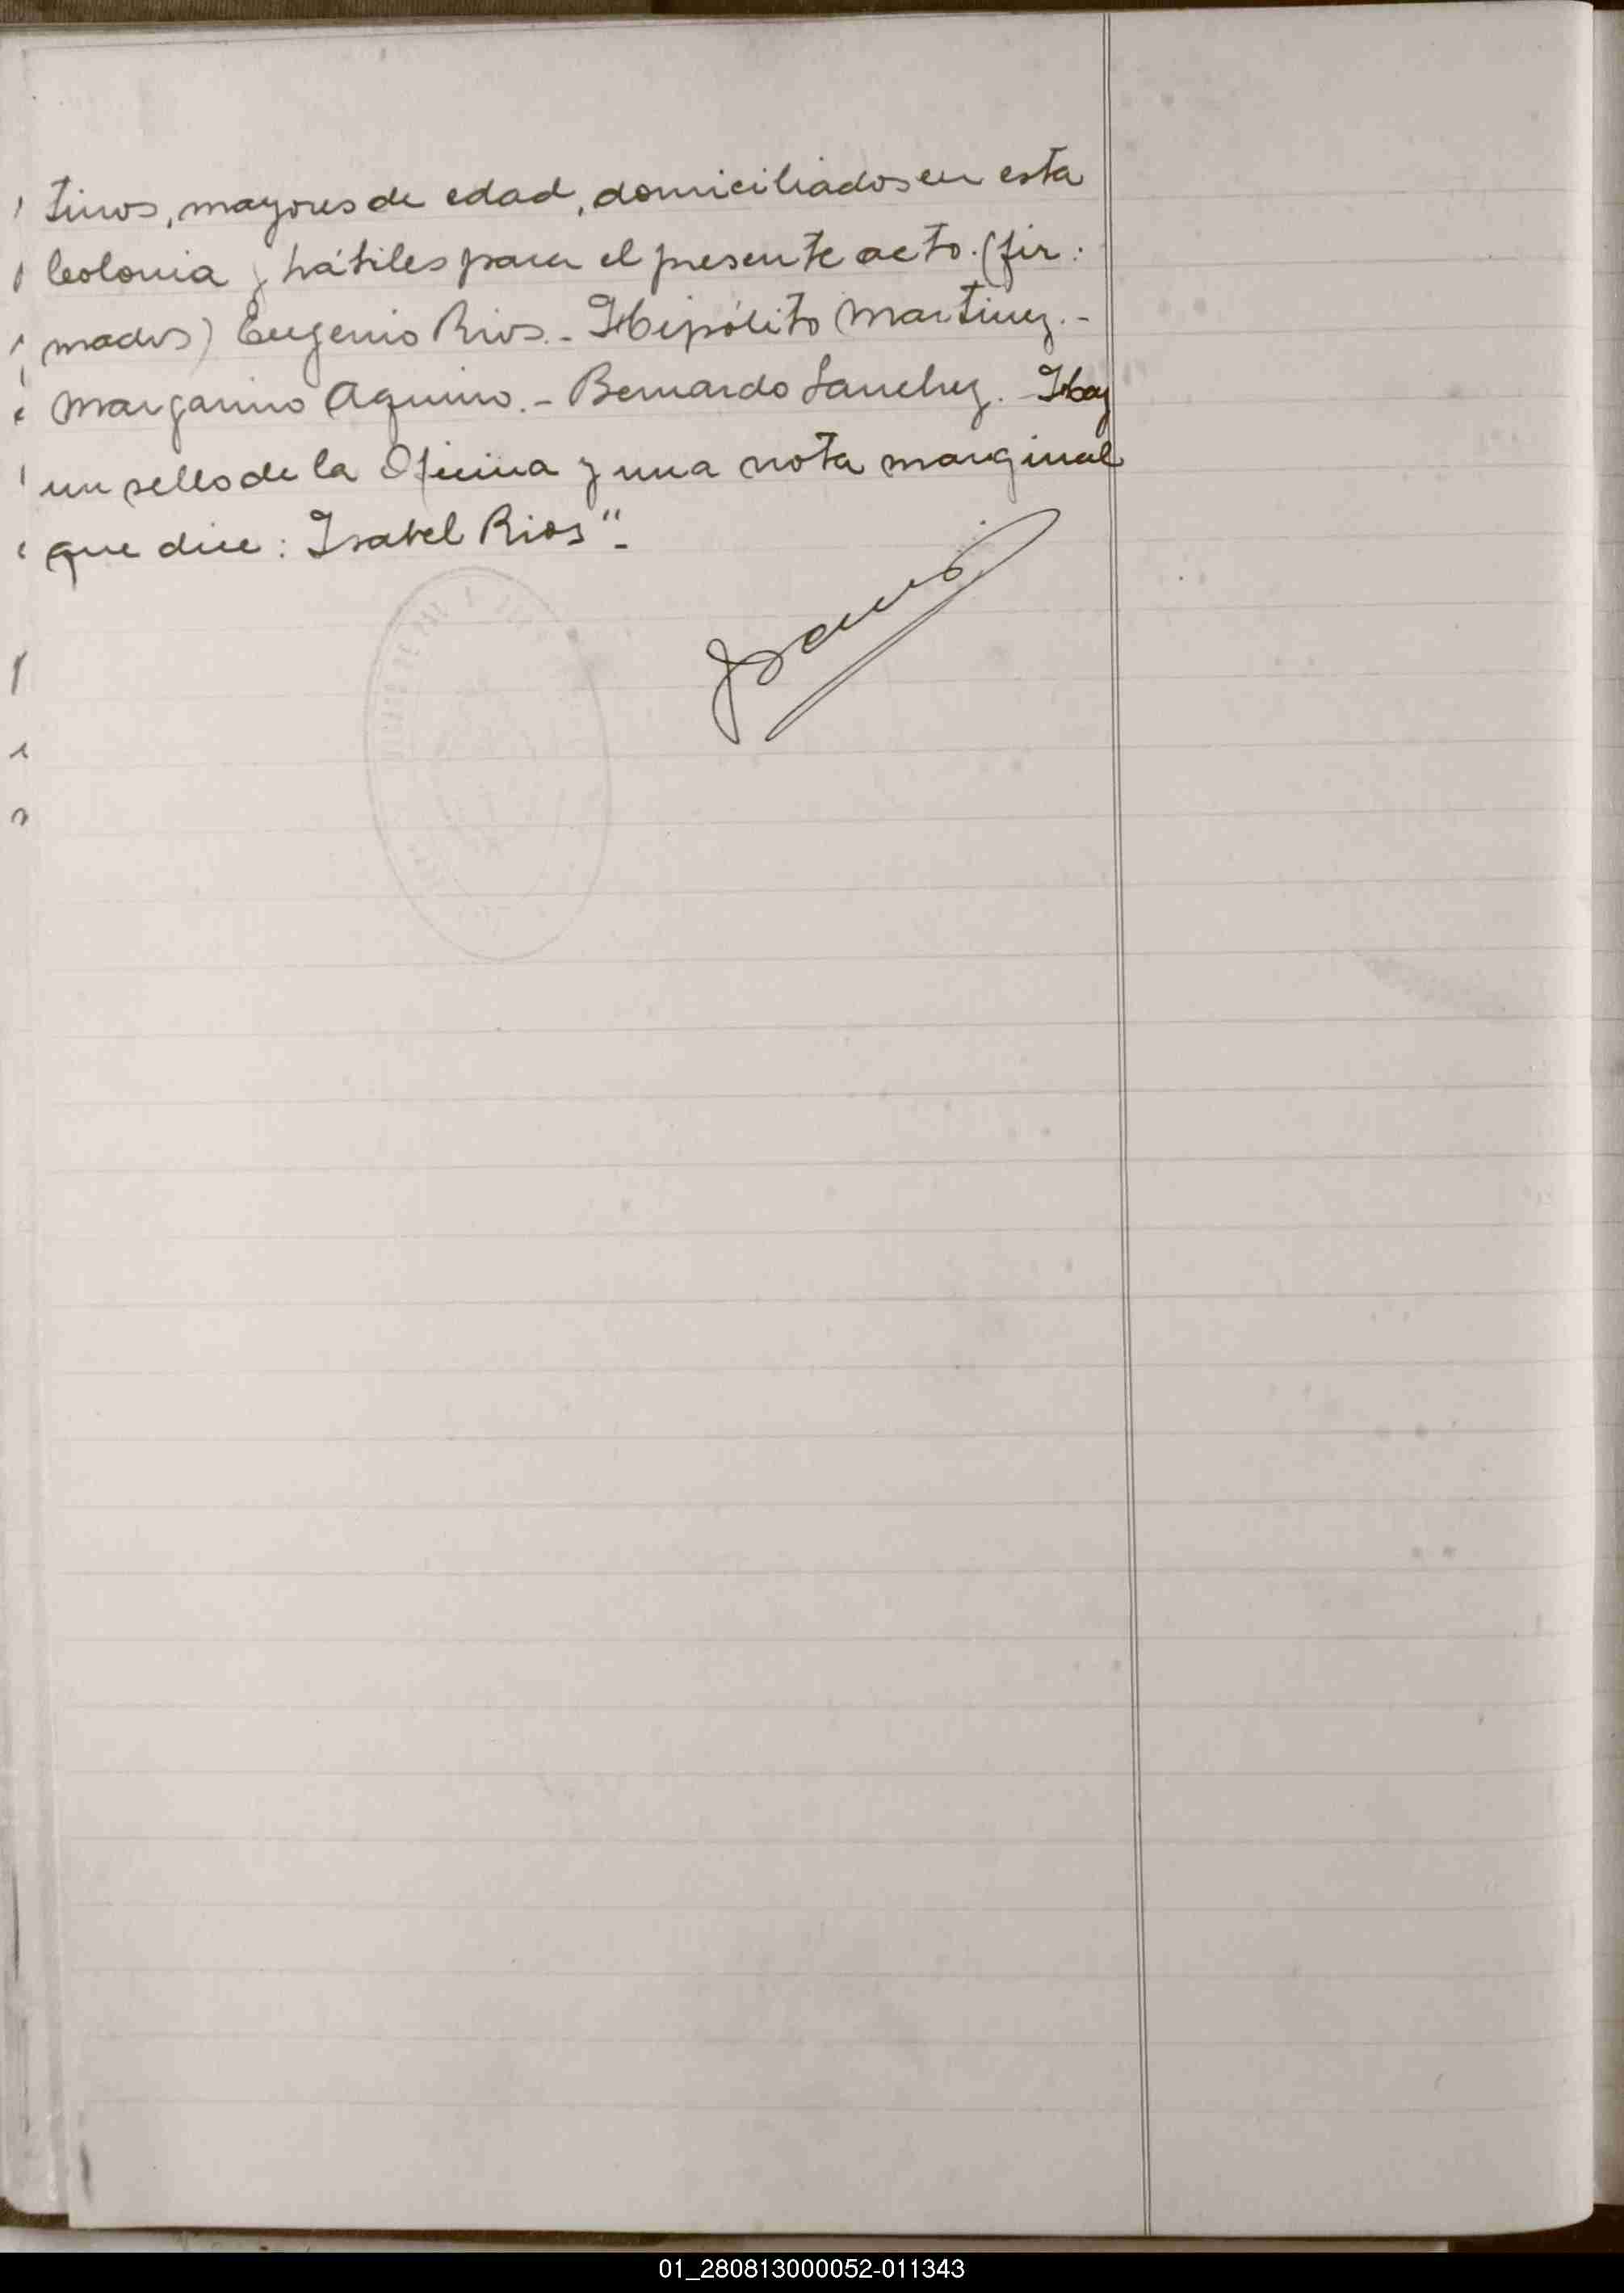 tinos, mayores de edad, domiciliados en esta
Colonia y hábiles para el presente acto. (fir:
mados) Eugenio Rios.- Hipólito Martinez.-
Margarino Aquino.- Bernardo Sanchez. Hay
un sello de la Oficina y una nota marginal
que dice: Isabel Rios".-
01_280813000052-011343